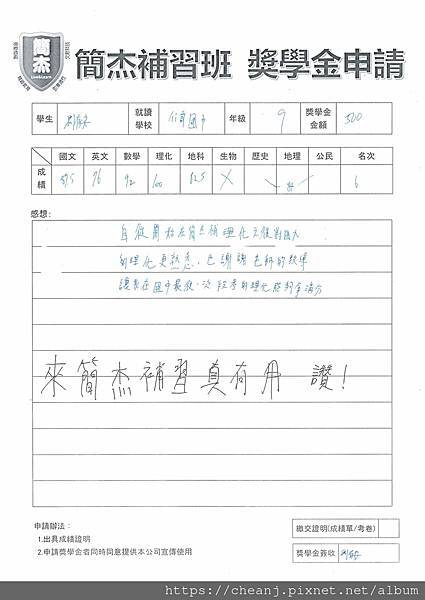 簡杰
Live&Learn
簡杰補習班 獎學金申請
學生 就讀學校 國中 年級 9 獎學金金額 500
國文 英文 數學 理化 地科 生物 歷史 地理 公民 名次
成績 76 92 100 82.5 X 6
感想:
自從開始在簡杰補理化之後對
對理化更熟悉,也謝謝老師的教導
讓我在國中最後一次段考對理化能夠拿滿分
來簡杰補習真有用 讚!
申請辦法:
1.出具成績證明
2.申請獎學金者同時同意提供本公司宣傳使用
繳交證明(成績單/考卷)
獎學金簽收
https://cheanj.pixnet.net/album